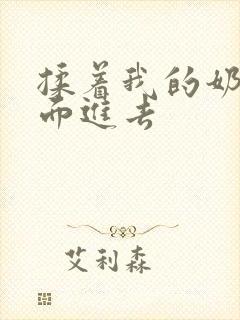 揉着我的奶
而进去
艾利森